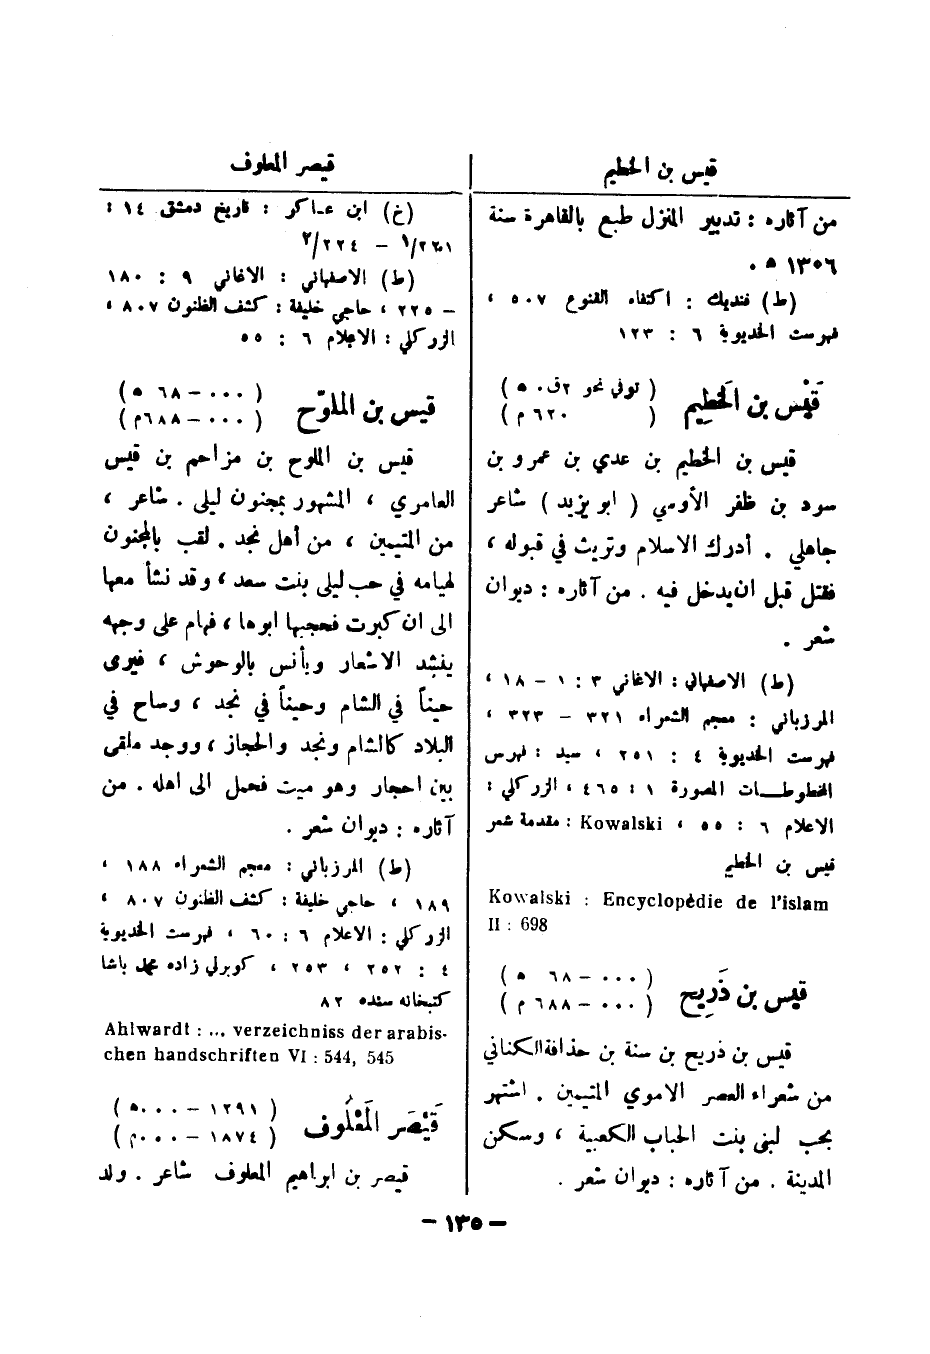 قيس بن الخطيم
من آثاره : تدبير المنزل طبع بالقاهرة سنة
١٣٠٦ ه .
(ط) فنديك : اكتفاء القنوع ٥٠٧ ،
فهرست الخديوية ٦ : ١٢٣
قَيْس بن الخَطِيم ( توفي نحو ٢ق.ه )
( ٦٢٠ م )
قيس بن الخطيم بن عدي بن عمرو بن
سود بن ظفر الأوسي ( ابو يزيد ) شاعر
جاهلي . أدرك الاسلام وتريث في قبوله ،
فقتل قبل ان يدخل فيه . من آثاره : ديوان
شعر .
(ط) الاصفهاني : الاغاني ٣ : ١ – ١٨ ،
المرزباني : معجم الشعراء ٣٢١ – ٣٢٣ ،
فهرست الخديوية ٤ : ٢٥١ ، سيد : فهرس
المخطوطات المصورة ١ : ٤٦٥ ، الزركلي :
الاعلام ٦ : ٥٥ ، Kowalski : مقدمة شعر
قيس بن الخطيم
Kowalski : Encyclopédie de l'islam
II : 698
قيس بن ذَرِيح ( ٠٠٠ – ٦٨ ه )
( ٠٠٠ – ٦٨٨ م )
قيس بن ذريح بن سنة بن حذافة الكناني
من شعراء العصر الاموي المتيمين . اشتهر
بحب لبنى بنت الحباب الكعبية ، وسكن
المدينة . من آثاره : ديوان شعر .
قيصر المعلوف
(خ) ابن عساكر : تاريخ دمشق ١٤ :
١/٢٢٠١ – ٢/٢٢٤
(ط) الاصفهاني : الاغاني ٩ : ١٨٠
– ٢٢٥ ، حاجي خليفة : كشف الظنون ٨٠٧ ،
الزركلي : الاعلام ٦ : ٥٥
قيس بن الملوّح ( ٠٠٠ – ٦٨ ه )
( ٠٠٠ – ٦٨٨ م )
قيس بن الملوح بن مزاحم بن قيس
العامري ، المشهور بمجنون ليلى . شاعر ،
من المتيمين ، من أهل نجد . لقب بالمجنون
لهيامه في حب ليلى بنت سعد ، وقد نشأ معها
الى ان كبرت فحجبها ابوها ، فهام على وجهه
ينشد الاشعار ويأنس بالوحوش ، فيرى
حيناً في الشام وحيناً في نجد ، وساح في
البلاد كالشام ونجد والحجاز ، ووجد ملقى
بين احجار وهو ميت فحمل الى اهله . من
آثاره : ديوان شعر .
(ط) المرزباني : معجم الشعراء ١٨٨ ،
١٨٩ ، حاجي خليفة : كشف الظنون ٨٠٧ ،
الزركلي : الاعلام ٦ : ٦٠ ، فهرست الخديوية
٤ : ٢٥٢ ، ٢٥٣ ، كوبرلي زاده محمد باشا
كتبخانه سنده ٨٢
Ahlwardt : ... verzeichniss der arabis-
chen handschriften VI : 544, 545
قَيْصَر المَعْلُوف ( ١٢٩١ – ٠٠٠ ه )
( ١٨٧٤ – ٠٠٠ م )
قيصر بن ابراهيم المعلوف شاعر . ولد
– ١٣٥ –